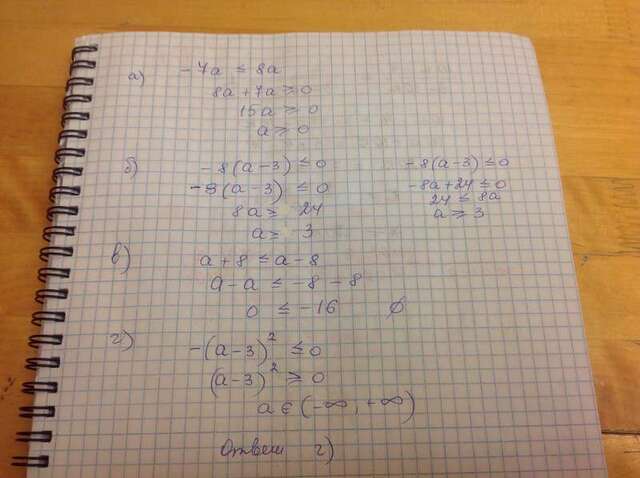 а) -7a ≤ 8a
8a + 7a ≥ 0
15a ≥ 0
a ≥ 0
б) -8(a-3) ≤ 0
-8(a-3) ≤ 0
8a ≥ 24
a ≥ 3
-8(a-3) ≤ 0
-8a+24 ≤ 0
24 ≤ 8a
a ≥ 3
в) a + 8 ≤ a - 8
a - a ≤ -8 - 8
0 ≤ -16 ∅
г) -(a-3)² ≤ 0
(a-3)² ≥ 0
a ∈ (-∞, +∞)
Ответ г)